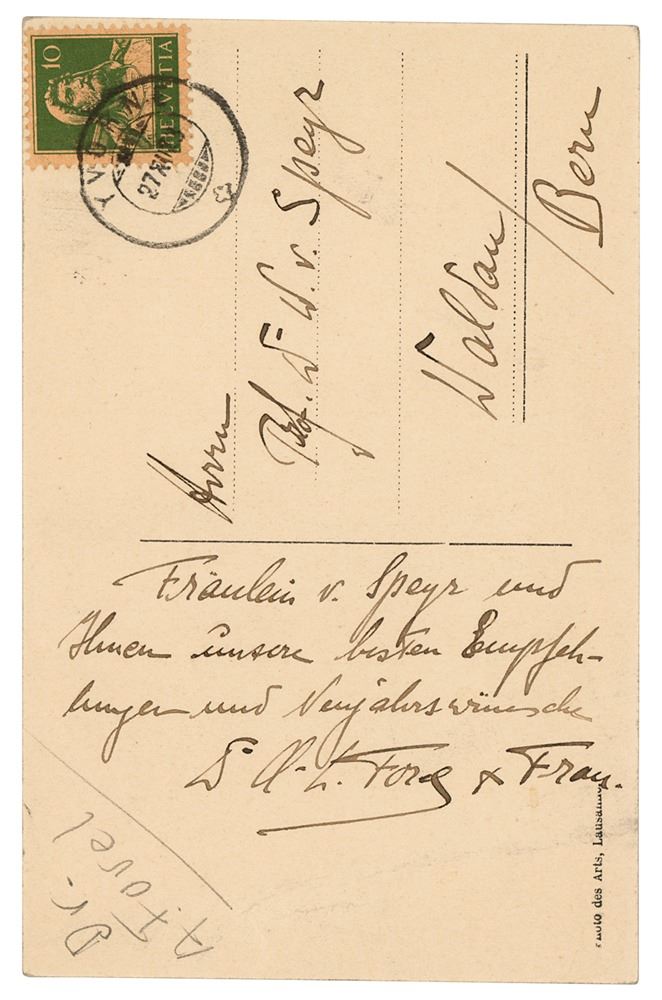 10
HELVETIA
YVORNE
27 XII
Herrn
Prof. Dr W. v. Speyr
Waldau / Bern
Fräulein v. Speyr und
Ihnen unsere besten Empfeh-
lungen und Neujahrswünsche
Dr A. L. Forel & Frau.
Photo des Arts, Lausanne
Dr.
A. Forel